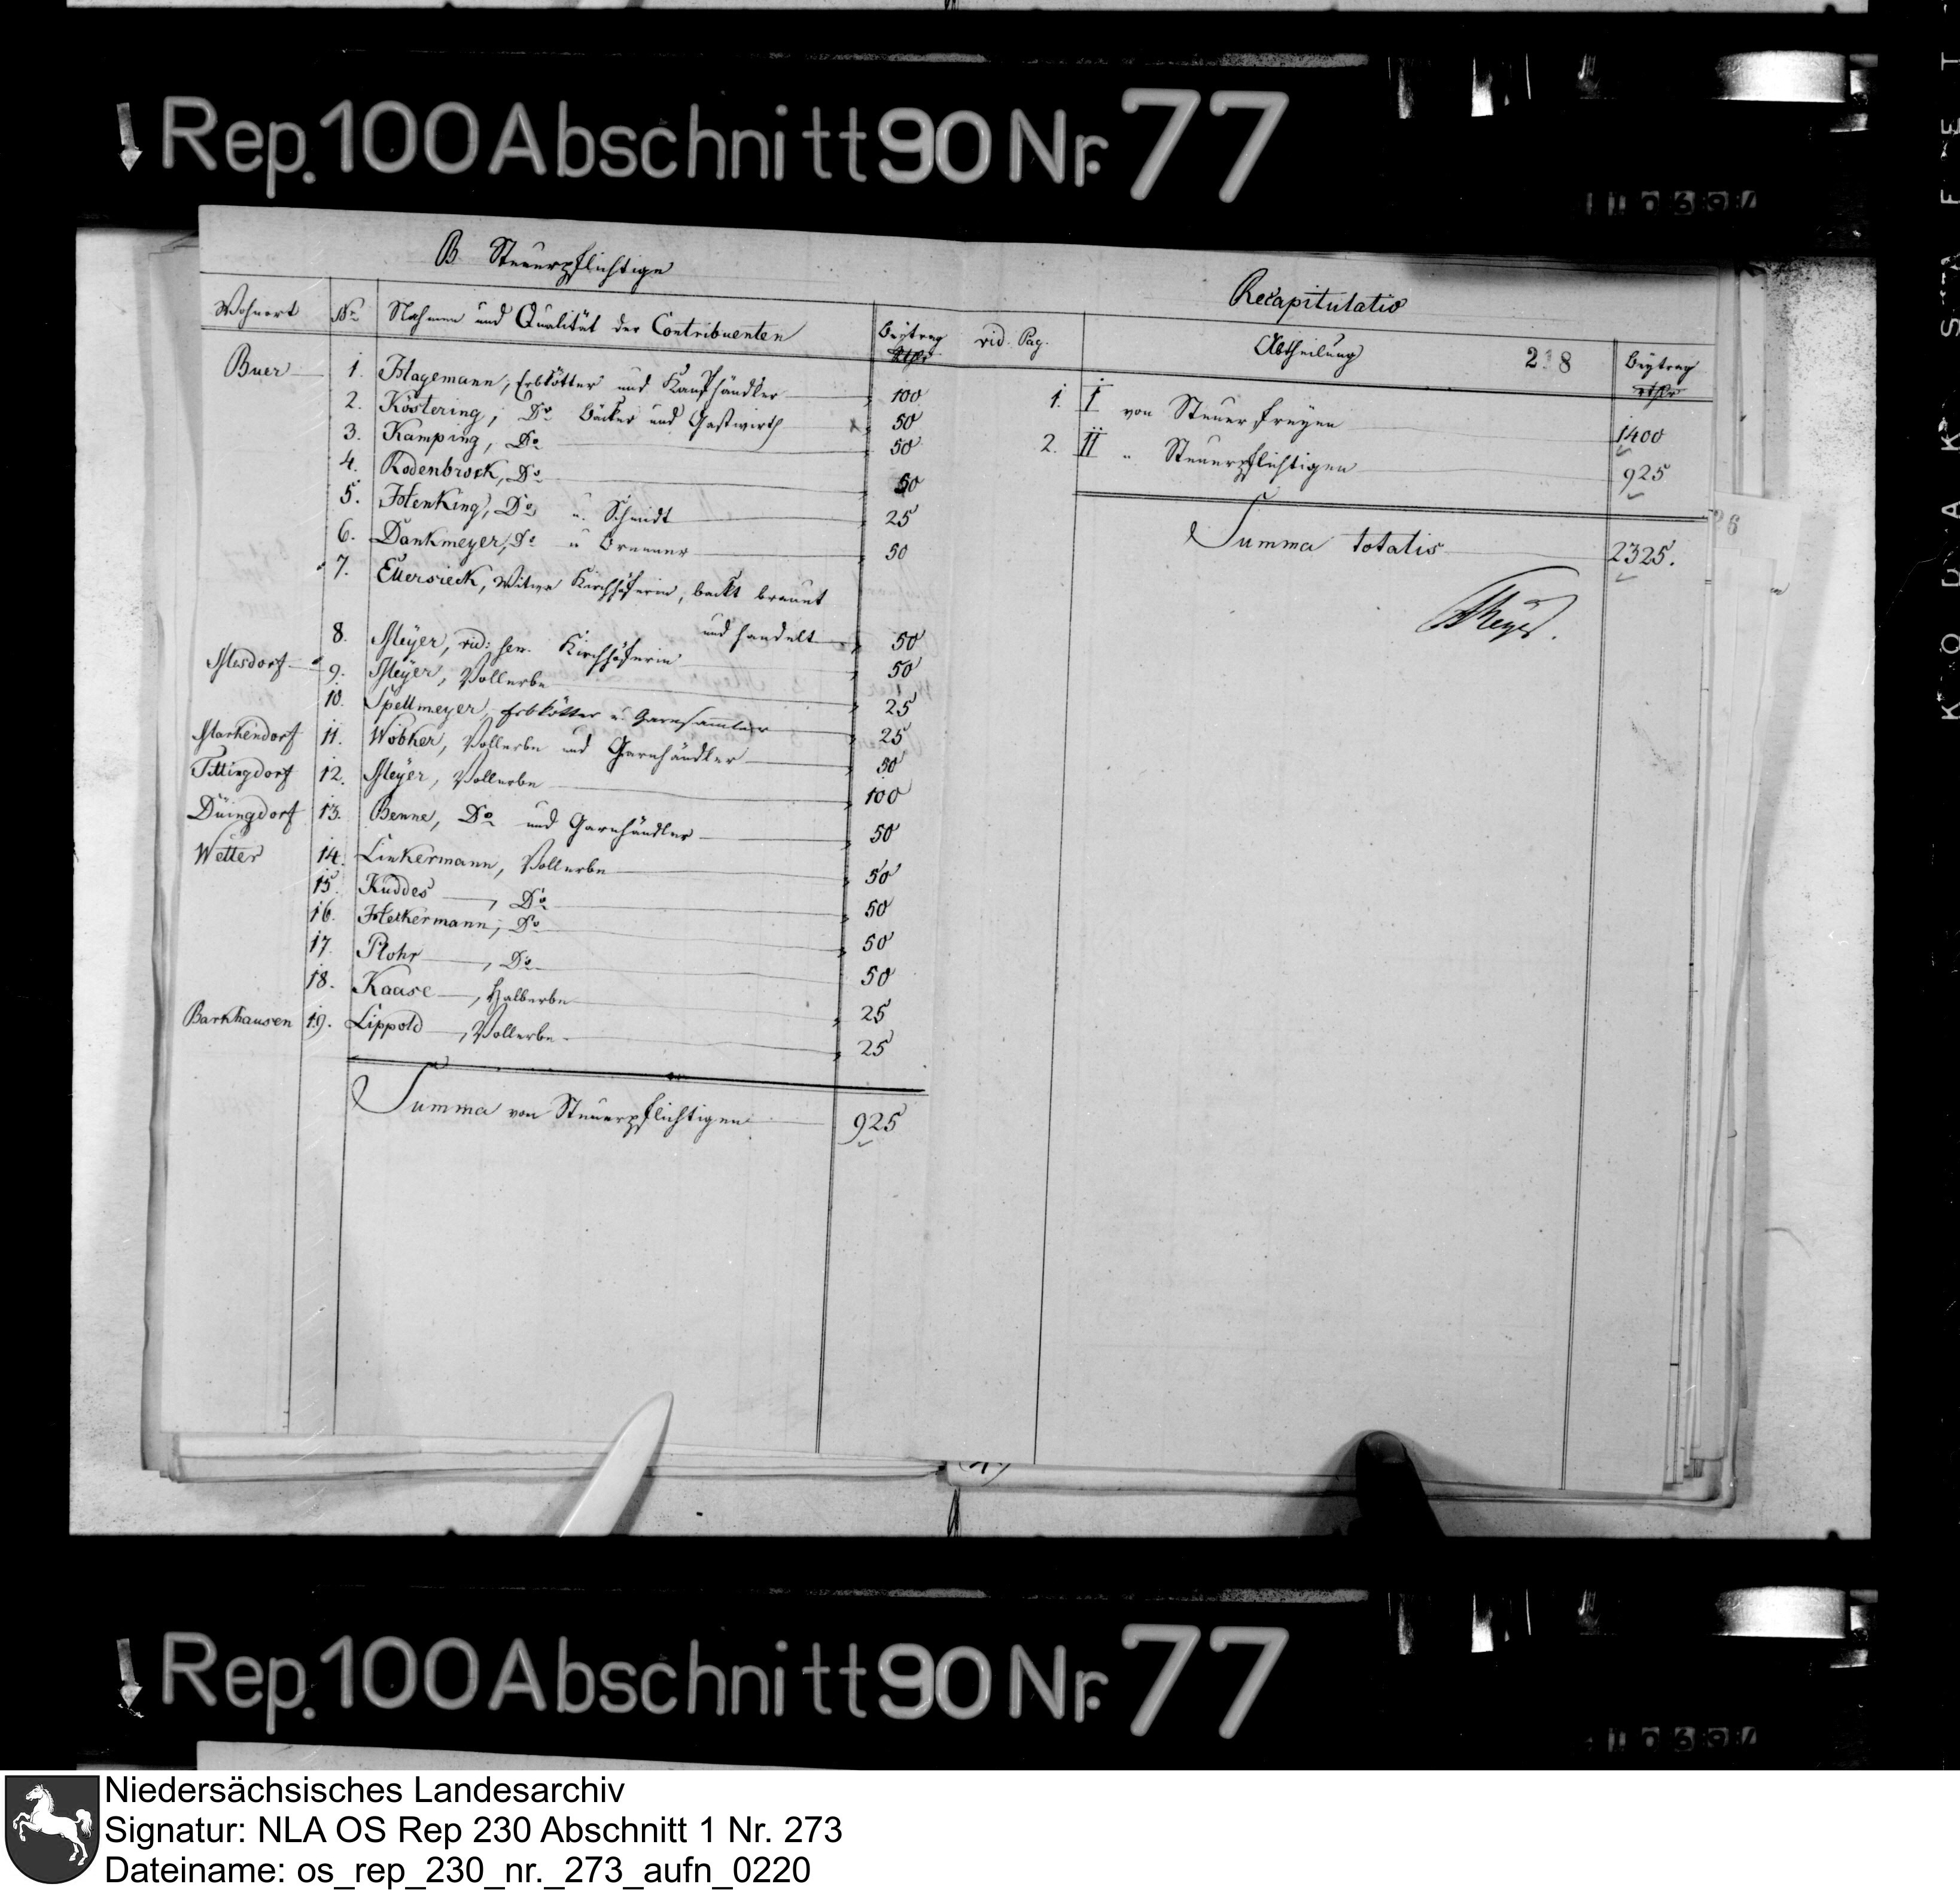 Rep. 100 Abschnitt 90 Nr. 77
B Steuerpflichtige
Wohnort Nr. Nahmen und Qualität der Contribuenten Beytrag rthlr
Buer 1. Hagemann, Erbkötter und Kaufhändler 100
2. Köstering, Do Bäcker und Gastwirth 50
3. Kamping, Do 50
4. Rodenbrock, Do 50
5. Henking, Do u. Schmidt 25
6. Dankmeyer, Do u 50
7. Ellersieck, Witwe Kirchhöferin, backt brauet
und handelt 50
8. Meyer, vid: Kirchhöferin 50
Mesdorf 9. Meyer, Vollerbe 25
10. Spellmeyer Erbkötter u. Garnsammler 25
Markendorf 11. Wöbker, Vollerbe und Garnhändler 50
Tittingdorf 12. Meyer, Vollerbe 100
Düingdorf 13. Benne, Do und Garnhändler 50
Wetter 14. Linkermann, Vollerbe 50
15. Kuddes, Do 50
16. Heckermann, Do 50
17. Plohr, Do 50
18. Kaase, Halberbe 25
Barkhausen 19. Lippold, Vollerbe 25
Summa von Steuerpflichtigen 925
Recapitulatio
vid. Pag. Abtheilung 218 Beytrag rthlr
1. I von Steuerfreyen 1400
2. II " Steuerpflichtigen 925
Summa totalis 2325.
Meyer.
Rep. 100 Abschnitt 90 Nr. 77
Niedersächsisches Landesarchiv
Signatur: NLA OS Rep 230 Abschnitt 1 Nr. 273
Dateiname: os_rep_230_nr._273_aufn_0220